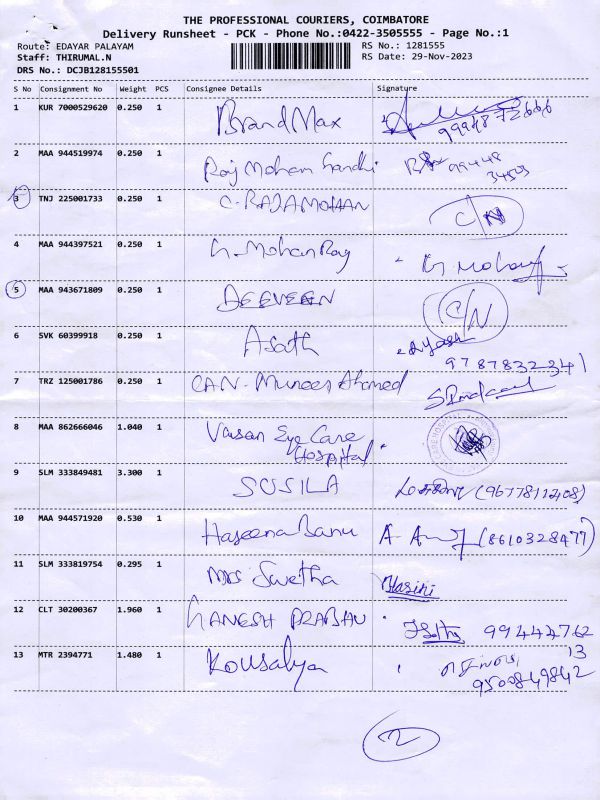 THE PROFESSIONAL COURIERS, COIMBATORE
Delivery Runsheet - PCK - Phone No.:0422-3505555 - Page No.:1
Route: EDAYAR PALAYAM RS No.: 1281555
Staff: THIRUMAL.N RS Date: 29-Nov-2023
DRS No.: DCJB128155501
S No Consignment No Weight PCS Consignee Details Signature
1 KUR 7000529620 0.250 1 BrandMax
2 MAA 944519974 0.250 1 Raj Mohan Gandhi 99448
34503
3 TNJ 225001733 0.250 1 C. RAJAMOHAN C/N
4 MAA 944397521 0.250 1 G. Mohan Raj G Mohan
5 MAA 943671809 0.250 1 C/N
6 SVK 60399918 0.250 1 Asath
9787832341
7 TRZ 125001786 0.250 1 CAN-Munees Ahamed
8 MAA 862666046 1.040 1 Vasan Eye Care
Hospital
9 SLM 333849481 3.300 1 SUSILA (9677811208)
10 MAA 944571920 0.530 1 Haseena Banu (8610328477)
11 SLM 333819754 0.295 1 Mrs Swetha Hasini
12 CLT 30200367 1.960 1 GANESH PRABAU 99444762
13
13 MTR 2394771 1.480 1 Kousalya
9500849842
2